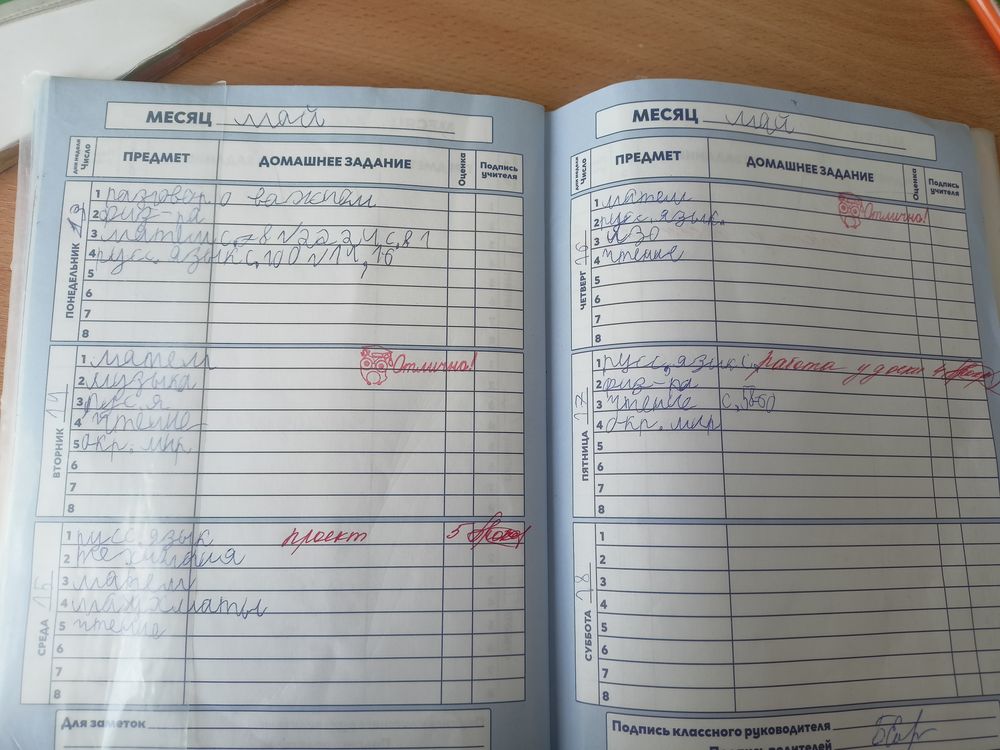 МЕСЯЦ май
дни недели Число ПРЕДМЕТ ДОМАШНЕЕ ЗАДАНИЕ Оценка Подпись учителя
ПОНЕДЕЛЬНИК 13
1 разговор о важном
2 физ-ра
3 матем с.
4 русс. язык с. 100
5
6
7
8
ВТОРНИК 14
1 матем Отлично!
2 музыка
3 рус.я
4 чтение
5 окр. мир
6
7
8
СРЕДА 15
1 русс. язык проект 5
2
3 матем
4 шахматы
5 чтение
6
7
8
Для заметок
МЕСЯЦ май
дни недели Число ПРЕДМЕТ ДОМАШНЕЕ ЗАДАНИЕ Оценка Подпись учителя
ЧЕТВЕРГ 16
1 матем
2 русс. язык. Отлично!
3 ИЗО
4 чтение
5
6
7
8
ПЯТНИЦА 17
1 русс. язык с. работа у доски
2 физ-ра
3 чтение с.
4 окр. мир
5
6
7
8
СУББОТА 18
1
2
3
4
5
6
7
8
Подпись классного руководителя
Подпись родителей